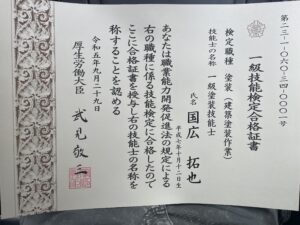 第二三-一-〇六〇-三四-〇〇〇一号
一級技能検定合格証書
検定職種 塗装(建築塗装作業)
技能士の名称 一級塗装技能士
氏名 国広 拓也
平成七年十月十二日生
あなたは職業能力開発促進法の規定による
右の職種に係る技能検定に合格したので
ここに合格証書を授与し右の技能士の名称を
称することを認める
令和五年九月二十九日
厚生労働大臣 武見敬三